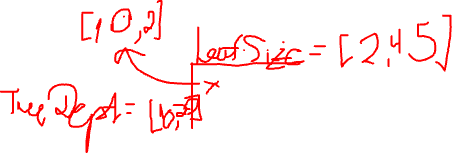 [1,0,2]
LeafSize = [2,4,5]
x
Tree Dept =